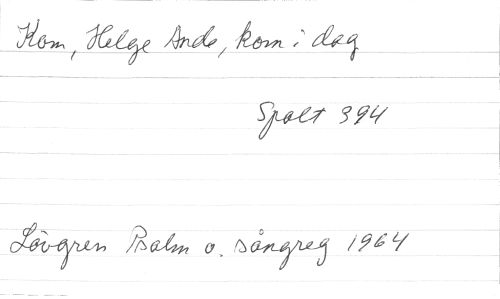 Kom, Helge Ande, kom i dag
Spalt 394
Lövgren Psalm o. sångreg 1964